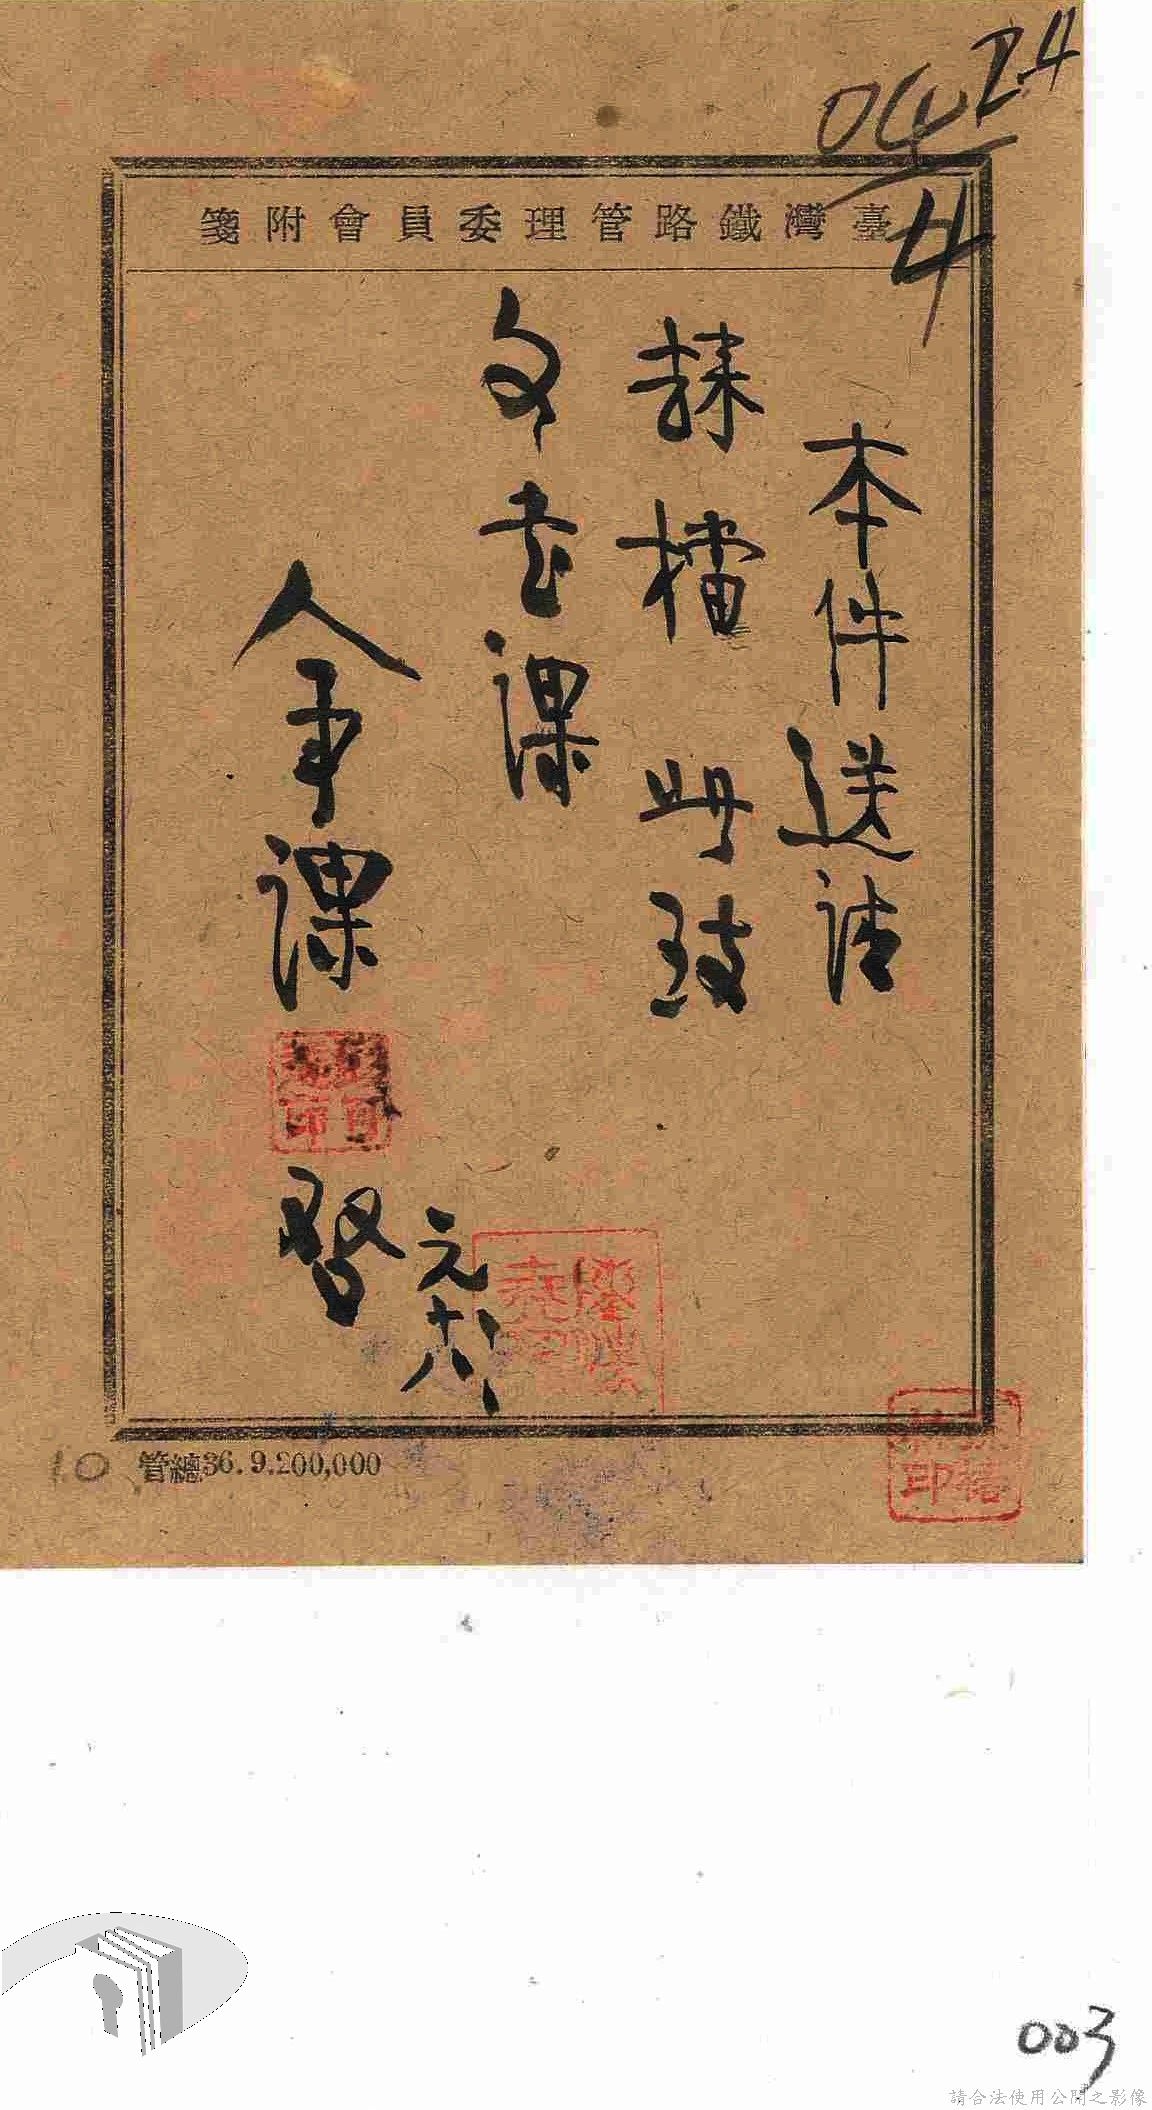 臺灣鐵路管理委員會附箋
本件送請
錄檔此致
文書課
人事課
啓
元六
十八
管總36.9.200,000
10
24
04
4
003
請合法使用公開之影像